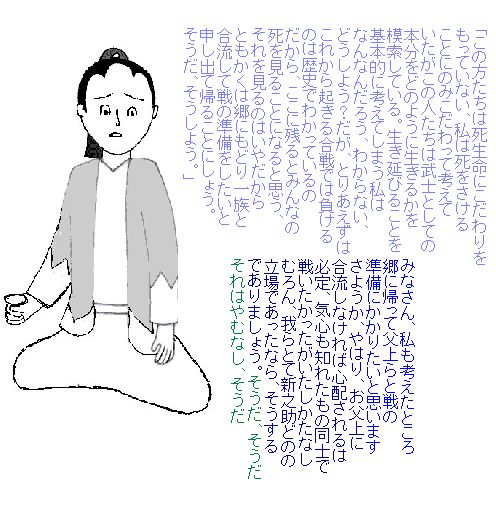 「この方たちは死生命にこだわりを
もっていない、私は死をさける
ことにのみこだわって考えて
いたがこの人たちは武士としての
本分をどのように生きるかを
模索している。生き延びることを
基本的に考えてしまう私は
なんなんだろう、わからない、
どうしよう？だが、とりあえずは
これから起きる合戦では負ける
のは歴史でわかっているの
だから、ここに残るとみんなの
死を見ることになると思う、
それを見るのはいやだから
ともかくは郷にもどり一族と
合流して戦の準備をしたいと
申し出て帰ることにしょう。
そうだ、そうしよう。」
みなさん、私も考えたところ
郷に帰って父上らと戦の
準備にかかりたいと思います
さようか、やはり、お父上に
合流しなければ心配されるは
必定、気心も知れたもの同士で
戦いたかったがいたしかたなし
むろん、我らとて新之助どのの
立場であったなら、そうする
でありましょう。そうだ、そうだ
それはやむなし、そうだ